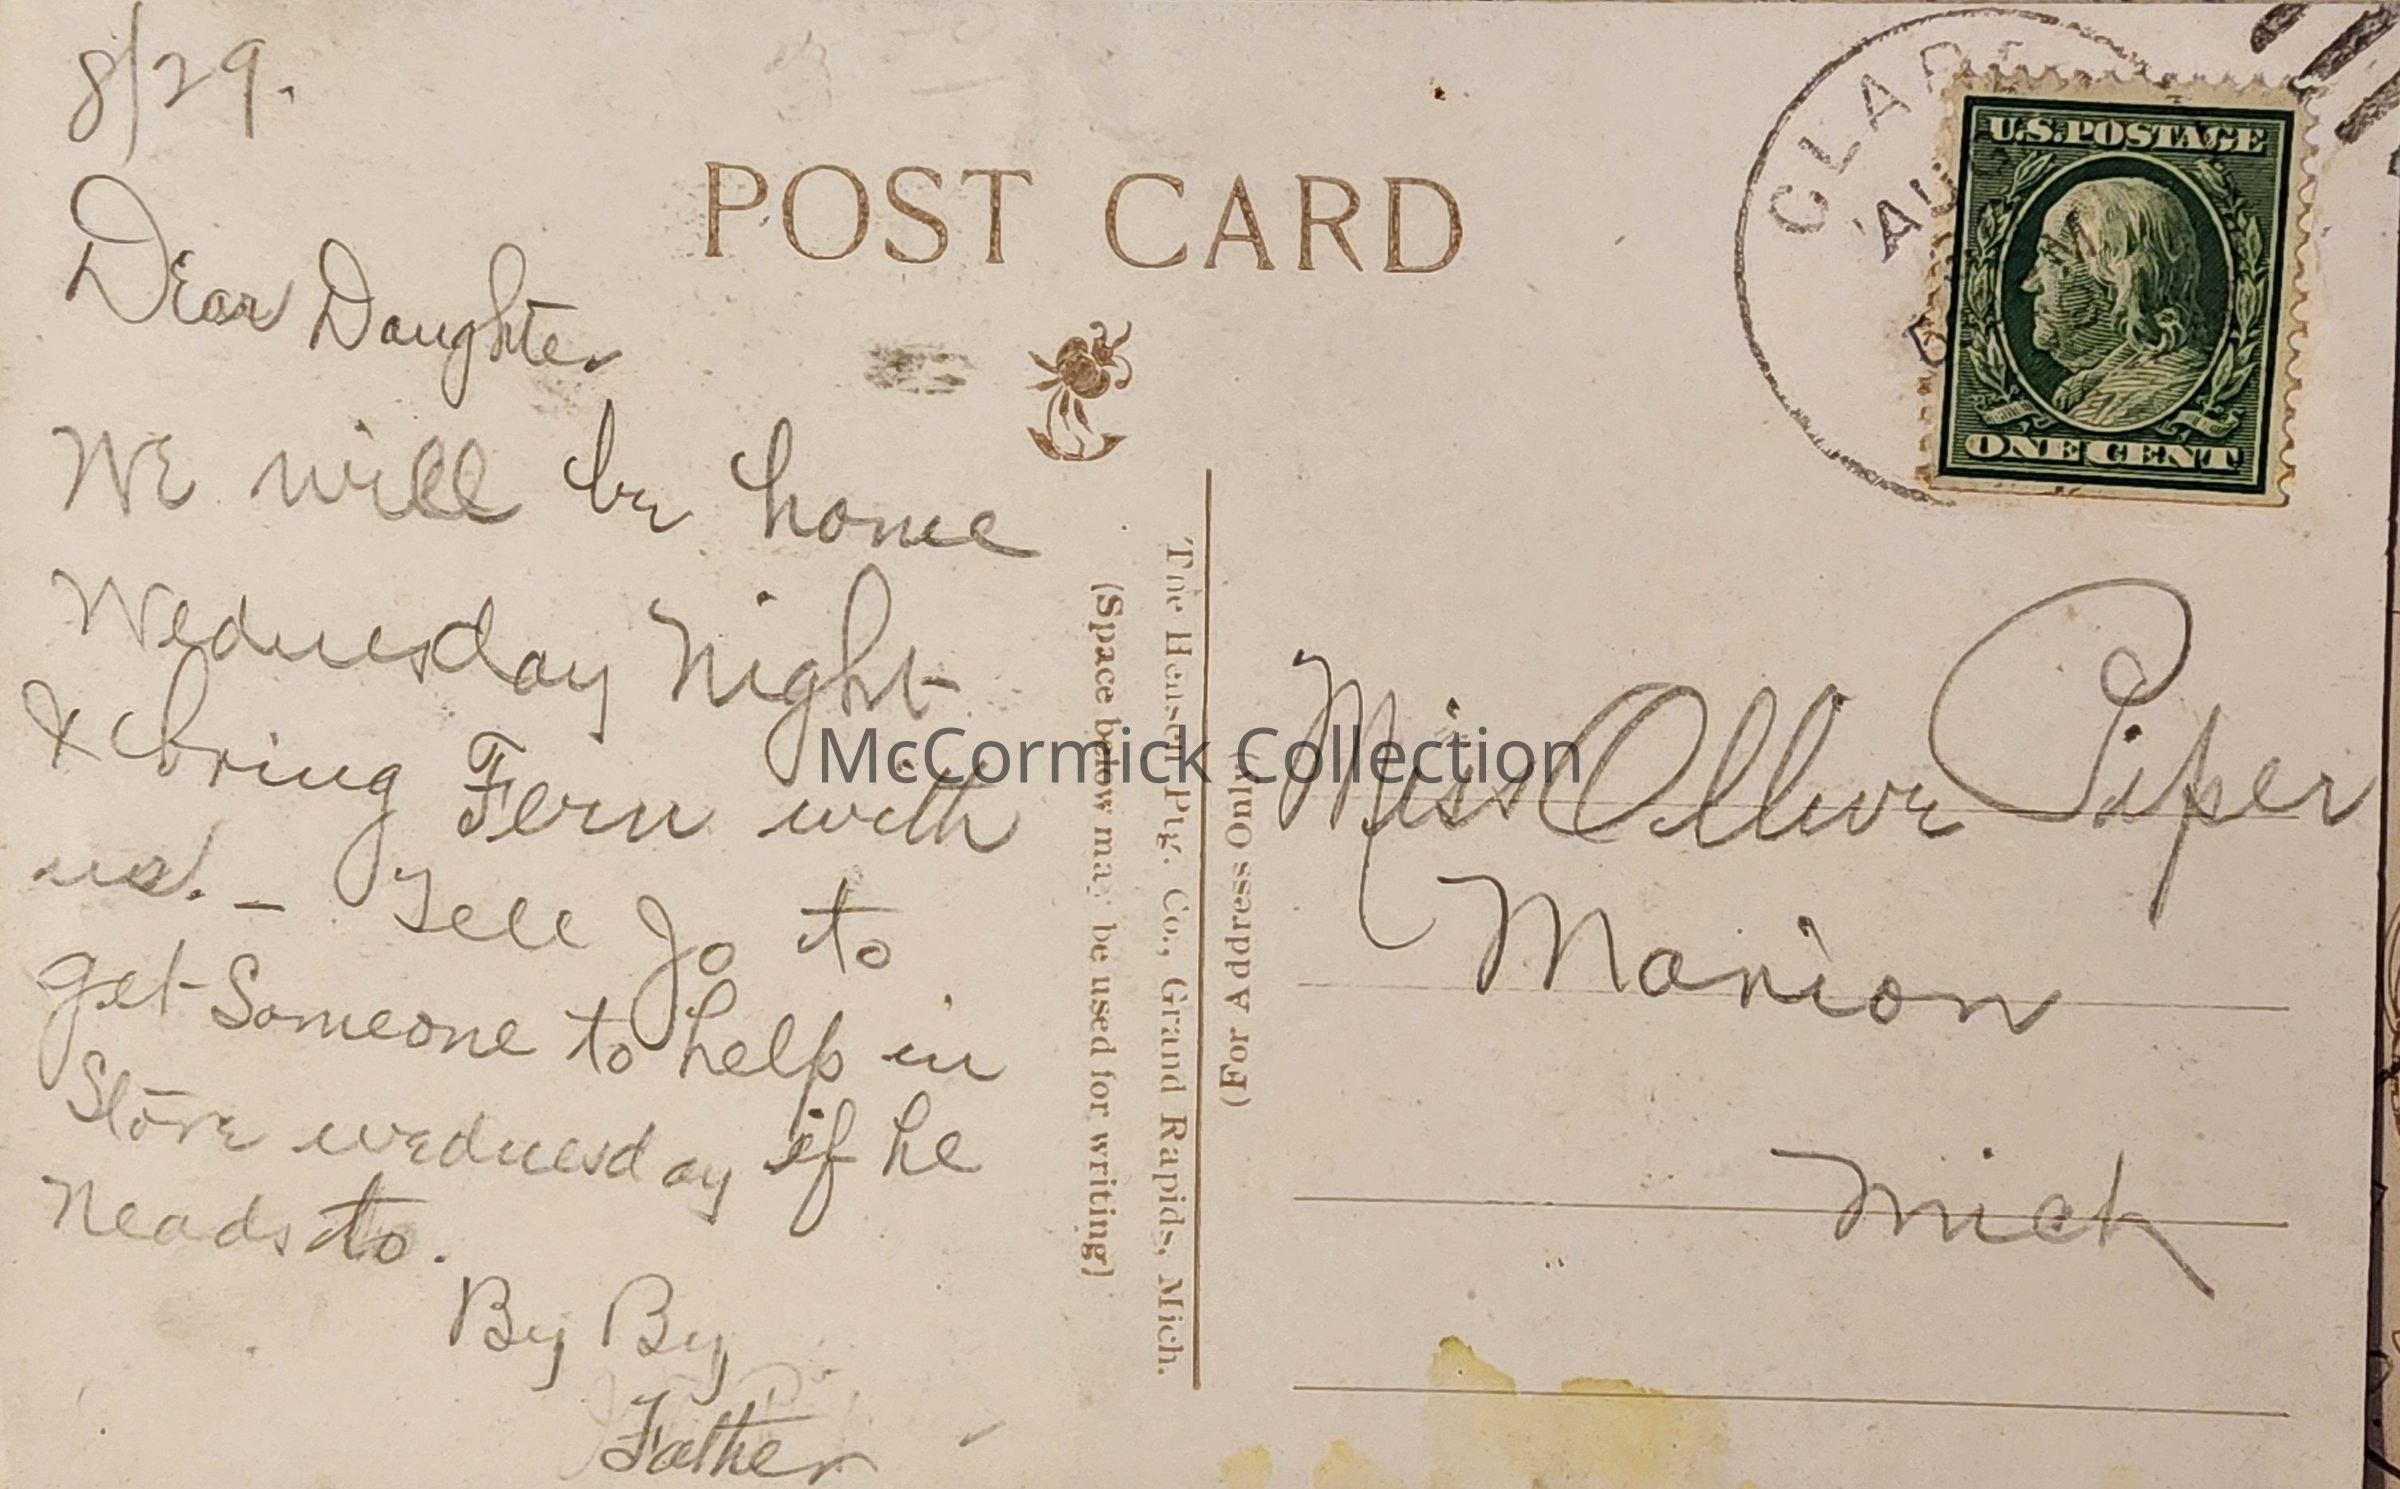 8/29.
Dear Daughter
We will be home
Wednesday night
& bring Fern with
us. – Tell Jo to
get Someone to help in
Store wednesday if he
Neads to.
By By
Father
POST CARD
(Space below may be used for writing)
The Hensen Ptg. Co., Grand Rapids, Mich.
(For Address Only)
U.S. POSTAGE
ONE CENT
Miss Ollive Piper
Marion
Mich
McCormick Collection